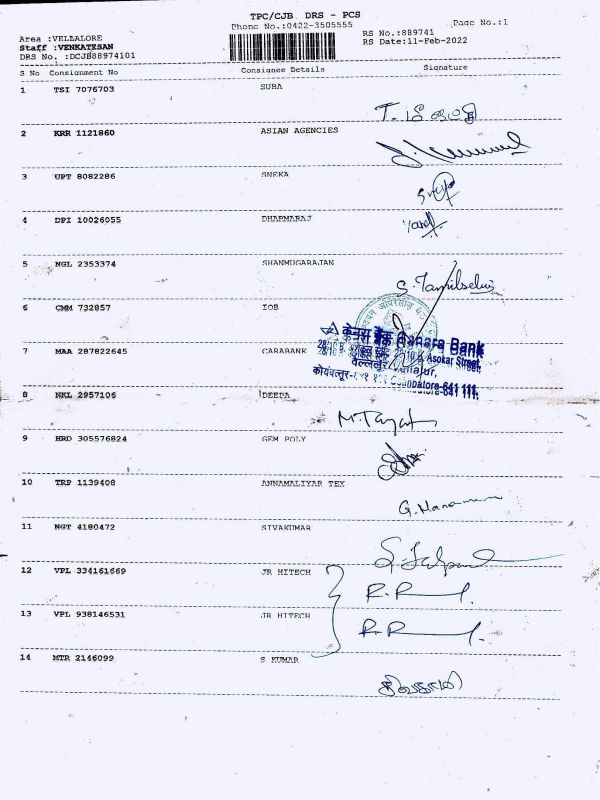 TPC/CJB DRS - PCS
Phone No.:0422-3505555
Page No.:1
Area :VELLALORE
Staff :VENKATESAN
DRS No. :DCJB88974101
RS No.:889741
RS Date:11-Feb-2022
S No Consignment No Consignee Details Signature
1 TSI 7076703 SUBA
2 KRR 1121860 ASIAN AGENCIES
3 UPT 8082286 SNEKA
4 DPI 10026055 DHARMARAJ
5 NGL 2353374 SHANMUGARAJAN
S. Tamilselvi
6 CMM 732857 IOB
केनरा बैंक Canara Bank
7 MAA 287822645 CARABANK
Asokar Street,
Coimbatore-641 111.
8 NKL 2957106 DEEPA
9 HRD 305576824 GEM POLY
10 TRP 1139408 ANNAMALIYAR TEX
11 NGT 4180472 SIVAKUMAR
12 VPL 334161669 JR HITECH
13 VPL 938146531 JR HITECH
14 MTR 2146099 S KUMAR